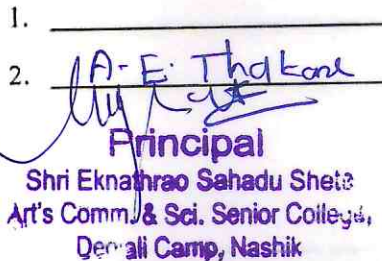 1.
2. A. E. Thakare
Principal
Shri Eknathrao Sahadu Shete
Art's Comm. & Sci. Senior College,
Deolali Camp, Nashik